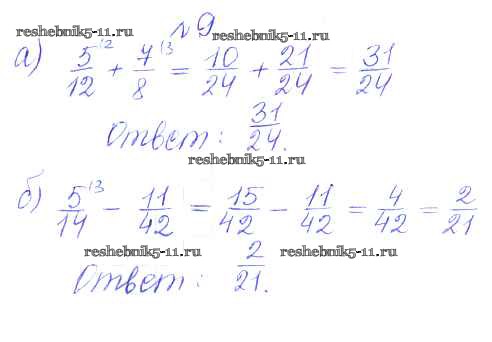 №9
reshebnik5-11.ru reshebnik5-11.ru
а) 5/12 \2 + 7/8 \3 = 10/24 + 21/24 = 31/24
Ответ: 31/24.
reshebnik5-11.ru
б) 5/14 \3 - 11/42 = 15/42 - 11/42 = 4/42 = 2/21
reshebnik5-11.ru reshebnik5-11.ru
Ответ: 2/21.